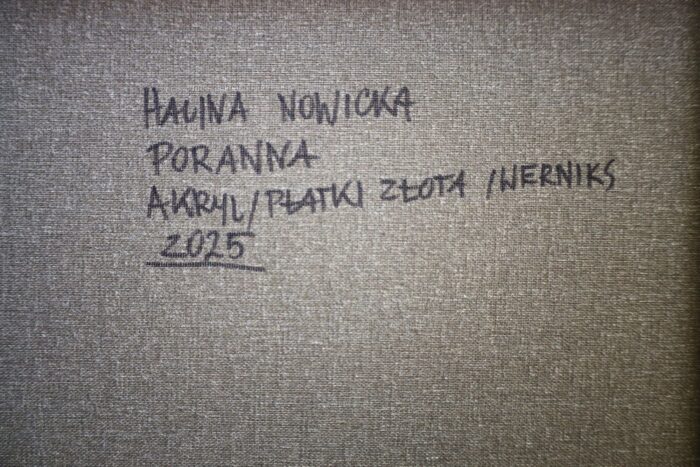 HALINA NOWICKA
PORANNA
AKRYL/PŁATKI ZŁOTA /WERNIKS
2025